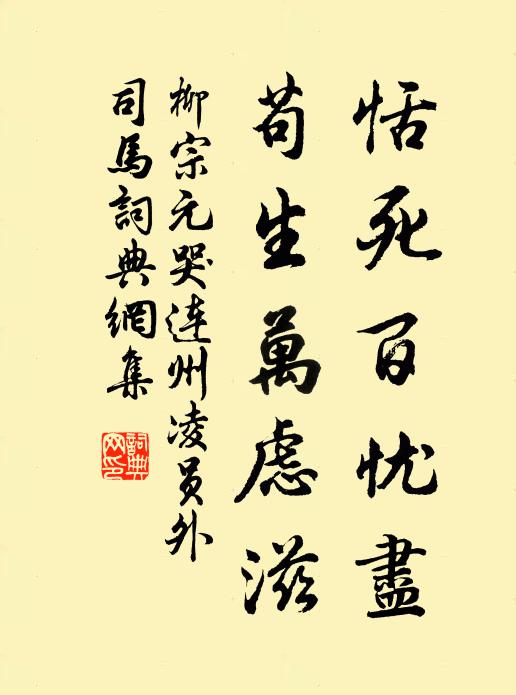 恬死百忧盡
苟生萬慮滋
柳宗元哭连州凌员外
司馬詞典網集
詞典網